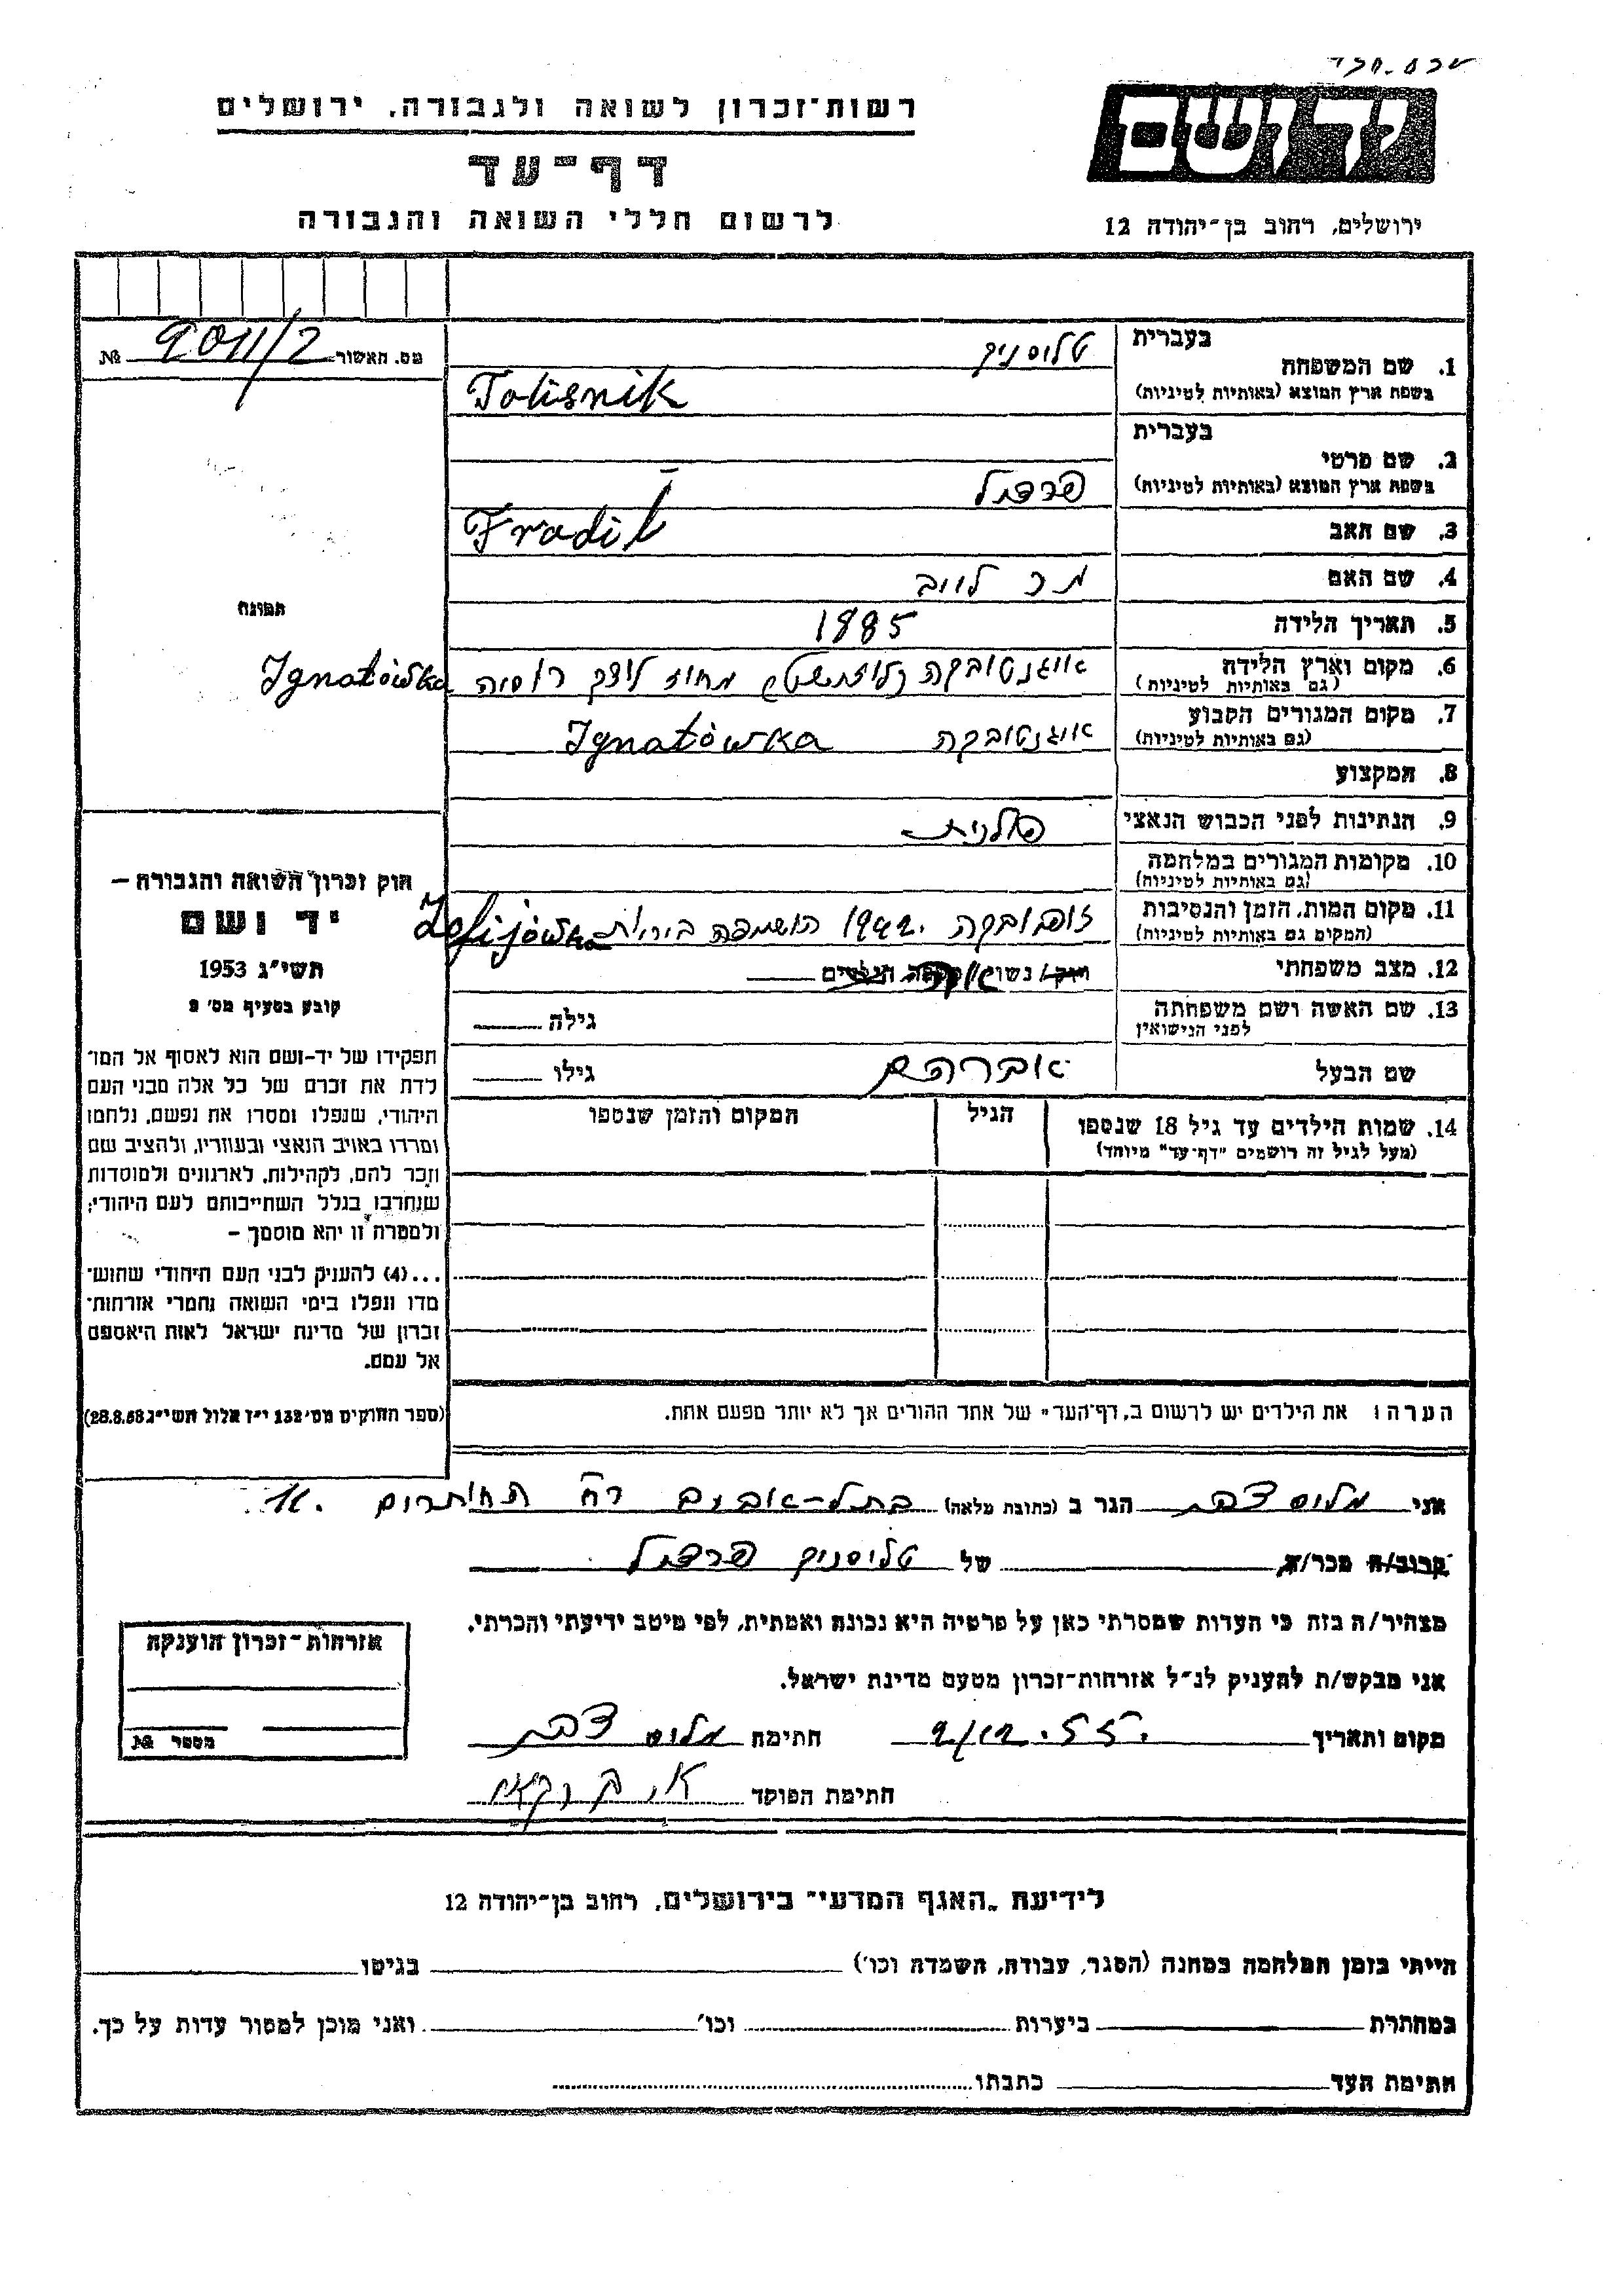 יד ושם
ירושלים, רחוב בן־יהודה 12
רשות־זכרון לשואה ולגבורה, ירושלים
דף־עד
לרשום חללי השואה והגבורה
מס. האשור № 9011/2
1. שם המשפחה
בעברית
טליסניק
בשפת ארץ המוצא (באותיות לטיניות)
Tolisnik
2. שם פרטי
בעברית
בשפת ארץ המוצא (באותיות לטיניות)
פרדיל
3. שם האב
Fradil
4. שם האם
5. תאריך הלידה
1885
6. מקום וארץ הלידה
(גם באותיות לטיניות)
מחוז לוצק רוסיה Ignatówka
7. מקום המגורים הקבוע
(גם באותיות לטיניות)
איגנטובקה Ignatówka
8. המקצוע
9. הנתינות לפני הכבוש הנאצי
פולנית
10. מקומות המגורים במלחמה
(גם באותיות לטיניות)
11. מקום המות, הזמן והנסיבות
(המקום גם באותיות לטיניות)
זופיובקה 1942 הושמדה ביריות Zofijówka
12. מצב משפחתי
נשואה
13. שם האשה ושם משפחתה
לפני הנישואין
גילה
שם הבעל
אברהם
גילו
14. שמות הילדים עד גיל 18 שנספו
(מעל לגיל זה רושמים "דף־עד" מיוחד)
הגיל
המקום והזמן שנספו
הערה: את הילדים יש לרשום ב„דף־העד" של אחד ההורים אך לא יותר מפעם אחת.
תמונה
חוק זכרון השואה והגבורה –
יד ושם
תשי"ג 1953
קובע בסעיף מס' 2
תפקידו של יד-ושם הוא לאסוף אל המו־
לדת את זכרם של כל אלה מבני העם
היהודי, שנפלו ומסרו את נפשם, נלחמו
ומרדו באויב הנאצי ובעוזריו, ולהציב שם
וזכר להם, לקהילות, לארגונים ולמוסדות
שנחרבו בגלל השתייכותם לעם היהודי;
ולמטרה זו יהא מוסמך –
...(4) להעניק לבני העם היהודי שהוש־
מדו ונפלו בימי השואה והמרי אזרחות־
זכרון של מדינת ישראל לאות היאספם
אל עמם.
(ספר החוקים מס' 132 י"ז אלול תשי"ג 28.8.53)
אני הגר ב (כתובת מלאה) בתל-אביב רח'
קרוב/ה מכר/ה של טליסניק פרדיל
מצהיר/ה בזה כי העדות שמסרתי כאן על פרטיה היא נכונה ואמתית, לפי מיטב ידיעתי והכרתי.
אני מבקש/ת להעניק לנ"ל אזרחות־זכרון מטעם מדינת ישראל.
מקום ותאריך חתימה
חתימת הפוקד
אזרחות־זכרון הוענקה
מספר №
לידיעת „האגף המדעי" בירושלים, רחוב בן־יהודה 12
הייתי בזמן המלחמה במחנה (הסגר, עבודה, השמדה וכו') בגיטו
במחתרת ביערות וכו' ואני מוכן למסור עדות על כך.
חתימת העד כתבתו